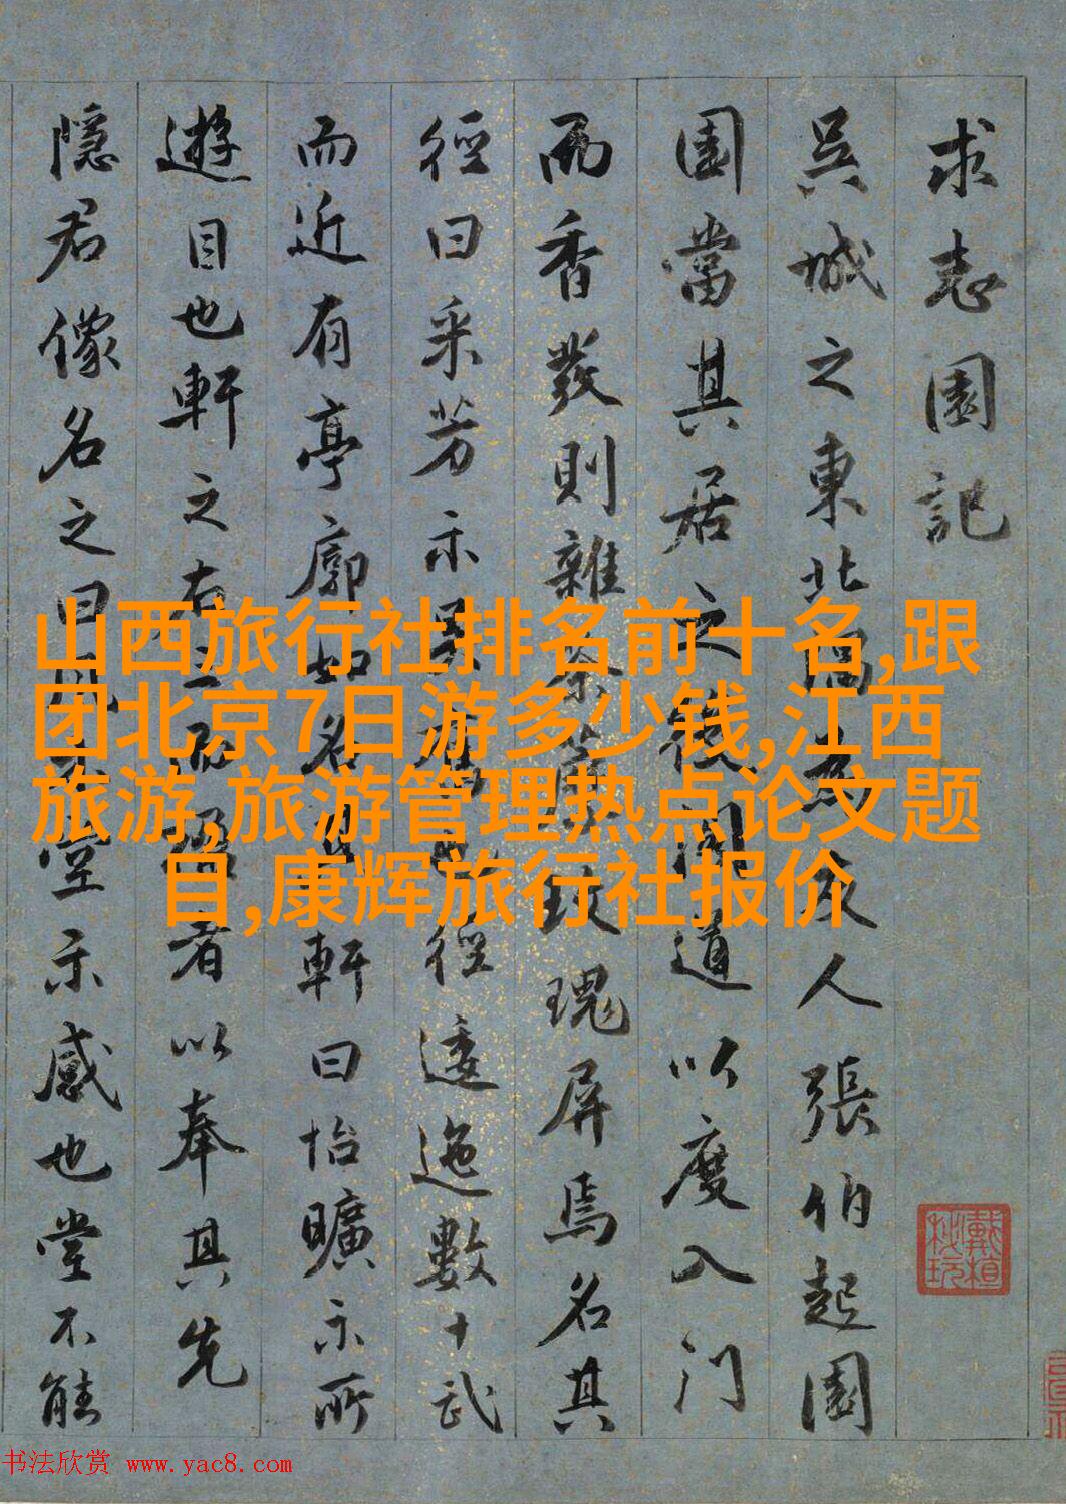 求志園記
吳城之東北隅為友人張伯起園
園當其居之後閣道以度入門
而香發則雜荼蘼玫瑰屏焉名其
徑曰采芳示吳舊也徑逶迤數十武
而近有亭廓如名其軒曰怡曠示所
遊目也軒之右者以奉其先
隱君像名之曰風木堂示感也堂不能
山西旅行社排名前十名,跟
团北京7日游多少钱,江西
旅游,旅游管理热点论文题
目,康辉旅行社报价
书法欣赏 www.yac8.com